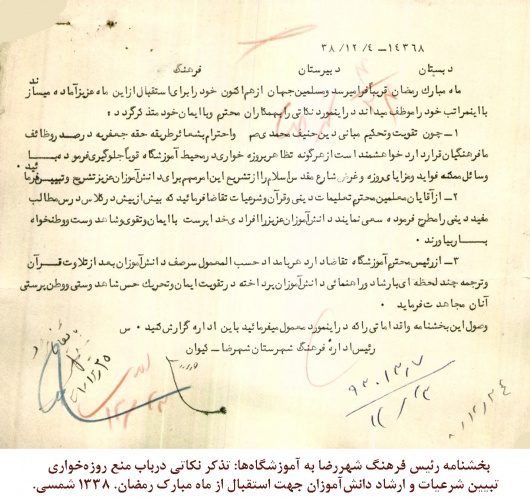 ۳۸/۱۲/۴-۱۴۳۶۸
دبستان دبیرستان فرهنگ
ماه مبارک رمضان قریباً فرا میرسد و مسلمین جهان از هم اکنون خود را برای استقبال از این ماه عزیز آماده میسازند
با این مراتب خود را موظف میداند در این مورد نکاتی را به همکاران محترم و با ایمان خود متذکر گردد:
۱- چون تقویت و تحکیم مبانی دین حنیف محمدی صم و احترام بشعائر طریقه حقه جعفریه در صدر وظائف
ما فرهنگیان قرار دارد خواهشمند است از هرگونه تظاهر بروزه خواری در محیط آموزشگاه قویاً جلوگیری فرموده با
وسائل ممکنه فواید و مزایای روزه و غرض شارع مقدس اسلام را از تشریع این امر مهم برای دانش آموزان عزیز تشریح و تبیین فرمائید
۲- از آقایان معلمین محترم تعلیمات دینی و قرآن و شرعیات تقاضا فرمائید که بیش از پیش در کلاس درس مطالب
مفید دینی را مطرح فرموده سعی نمایند دانش آموزان عزیز را افرادی خدا پرست با ایمان و تقوی و شاهدوست و وطنخواه
بار بیاورند.
۳- از رئیس محترم آموزشگاه تقاضا دارد هر بامداد حسب المعمول سر صف دانش آموزان بعد از تلاوت قرآن
و ترجمه چند لحظه ای بارشاد و راهنمائی دانش آموزان پرداخته در تقویت ایمان و تحریک حس شاهدوستی و وطن پرستی
آنان مجاهدت فرماید
وصول این بخشنامه و اقداماتی را که در این مورد معمول میفرمائید باین اداره گزارش کنید. س
رئیس اداره فرهنگ شهرستان شهرضا - کیوان
بخشنامه رئیس فرهنگ شهررضا به آموزشگاه‌ها: تذکر نکاتی درباب منع روزه‌خواری
تبیین شرعیات و ارشاد دانش‌آموزان جهت استقبال از ماه مبارک رمضان. ۱۳۳۸ شمسی.